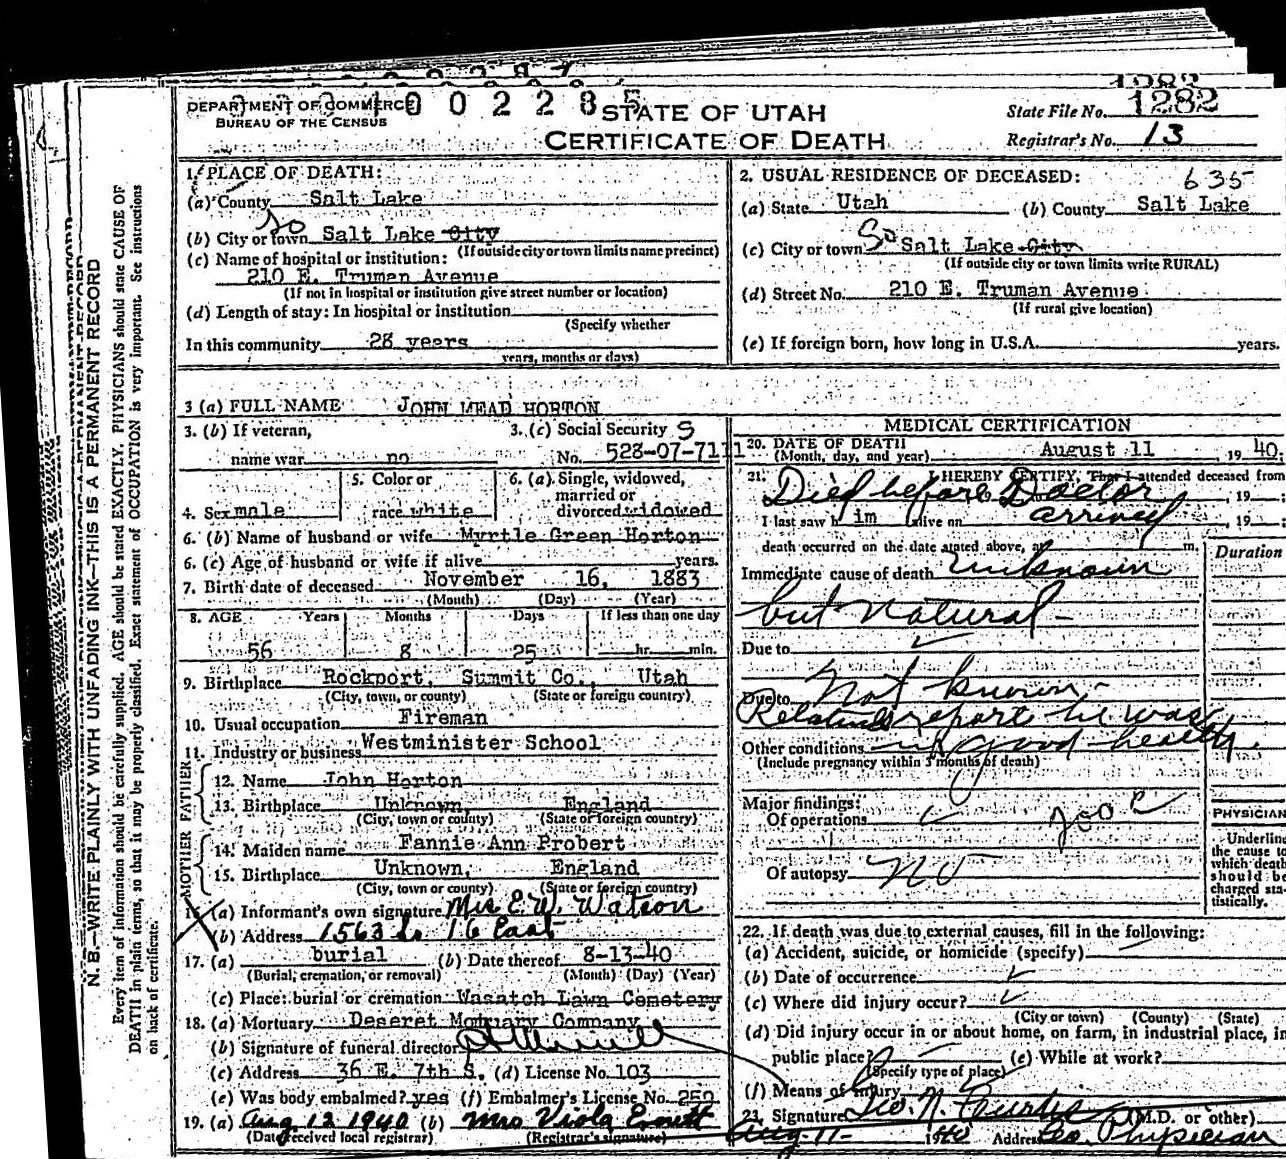 1282
DEPARTMENT OF COMMERCE
BUREAU OF THE CENSUS
STATE OF UTAH
CERTIFICATE OF DEATH
State File No. 1282
Registrar's No. 13
1. PLACE OF DEATH:
(a) County Salt Lake
(b) City or town So Salt Lake City
(If outside city or town limits name precinct)
(c) Name of hospital or institution:
210 E. Truman Avenue
(If not in hospital or institution give street number or location)
(d) Length of stay: In hospital or institution
(Specify whether
In this community 28 years
years, months or days)
2. USUAL RESIDENCE OF DECEASED: 635
(a) State Utah (b) County Salt Lake
(c) City or town So Salt Lake City
(If outside city or town limits write RURAL)
(d) Street No. 210 E. Truman Avenue
(If rural give location)
(e) If foreign born, how long in U.S.A. years.
3 (a) FULL NAME JOHN MEAD HORTON
3. (b) If veteran, 3. (c) Social Security S
name war no No. 528-07-7111
4. Sex male 5. Color or race white 6. (a) Single, widowed, married or divorced widowed
6. (b) Name of husband or wife Myrtle Green Horton
6. (c) Age of husband or wife if alive years.
7. Birth date of deceased November 16, 1883
(Month) (Day) (Year)
8. AGE Years Months Days If less than one day
56 8 25 hr. min.
9. Birthplace Rockport, Summit Co., Utah
(City, town, or county) (State or foreign country)
10. Usual occupation Fireman
11. Industry or business Westminister School
FATHER
12. Name John Horton
13. Birthplace Unknown, England
(City, town or county) (State or foreign country)
MOTHER
14. Maiden name Fannie Ann Probert
15. Birthplace Unknown, England
(City, town or county) (State or foreign country)
16 (a) Informant's own signature Mrs E. W. Watson
(b) Address 1563 So 16 East
17. (a) burial (b) Date thereof 8-13-40
(Burial, cremation, or removal) (Month) (Day) (Year)
(c) Place: burial or cremation Wasatch Lawn Cemetery
18. (a) Mortuary Deseret Motuary Company
(b) Signature of funeral director
(c) Address 36 E. 7th S. (d) License No. 103
(e) Was body embalmed? yes (f) Embalmer's License No.
19. (a) Aug 12 1940 (b) Mrs Viola
(Date received local registrar) (Registrar's signature)
MEDICAL CERTIFICATION
20. DATE OF DEATH August 11 1940.
(Month, day, and year)
21. I HEREBY CERTIFY, That I attended deceased from
Died before Doctor , 19
I last saw h im alive on arrived , 19
death occurred on the date stated above, at m.
Duration
Immediate cause of death unknown
but natural
Due to
Due to Not known
Relatives report he was
Other conditions in good health.
(Include pregnancy within 3 months of death)
Major findings:
Of operations
Of autopsy No
PHYSICIAN
Underline
the cause to
which death
should be
charged sta-
tistically.
22. If death was due to external causes, fill in the following:
(a) Accident, suicide, or homicide (specify)
(b) Date of occurrence
(c) Where did injury occur?
(City or town) (County) (State)
(d) Did injury occur in or about home, on farm, in industrial place, in
public place? (e) While at work?
(Specify type of place)
(f) Means of injury
23. Signature Geo. N. Curtis (M.D. or other)
Aug-11- 1940 Address Co. Physician
N. B.—WRITE PLAINLY WITH UNFADING INK—THIS IS A PERMANENT RECORD
Every item of information should be carefully supplied. AGE should be stated EXACTLY. PHYSICIANS should state CAUSE OF
DEATH in plain terms, so that it may be properly classified. Exact statement of OCCUPATION is very important. See instructions
on back of certificate.